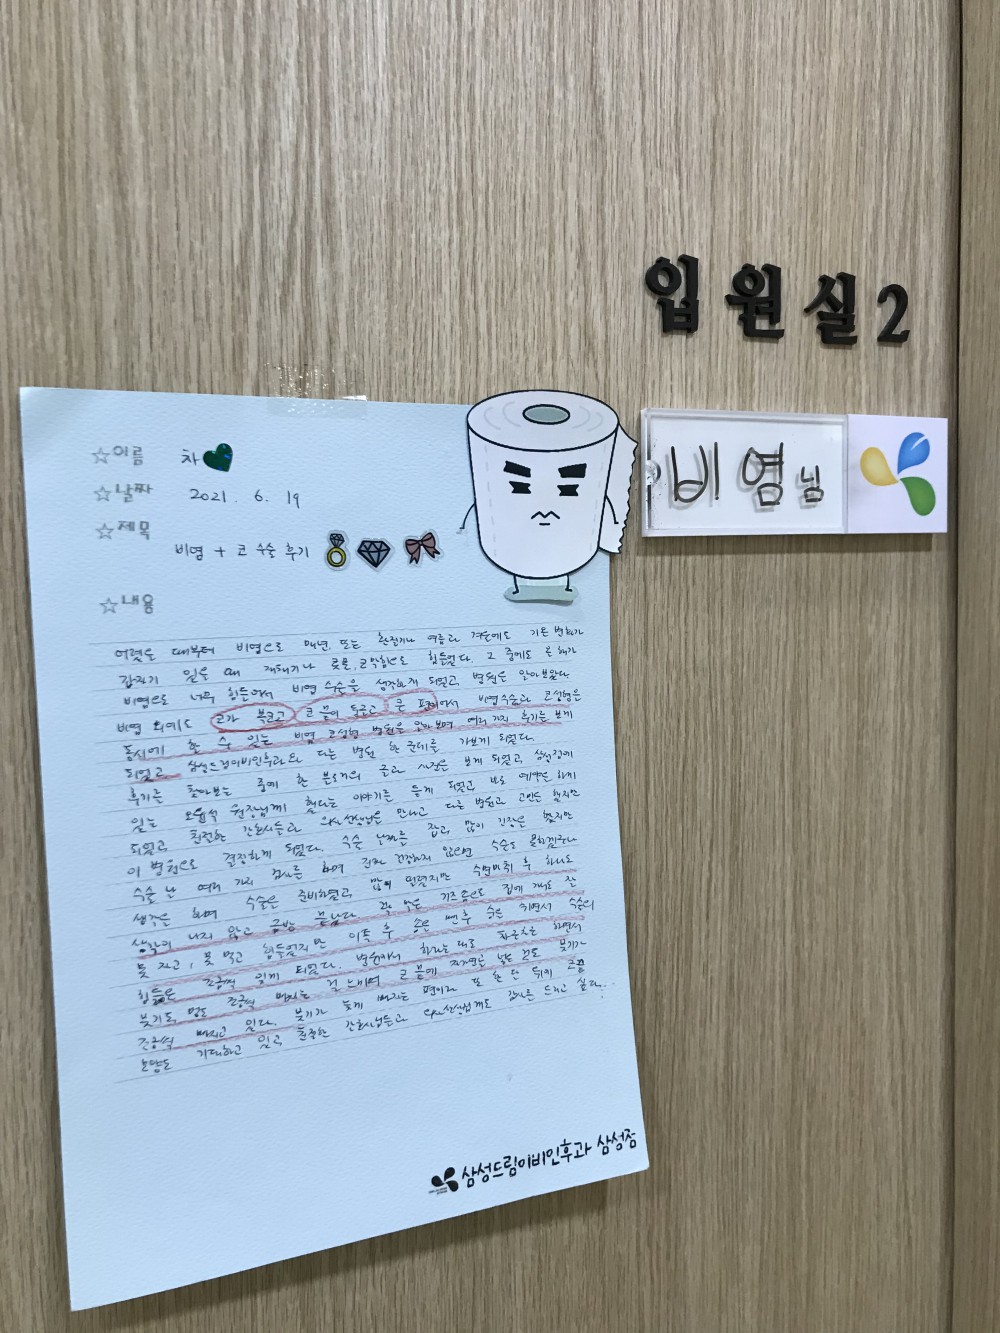 입원실2
비염님
☆이름 차
☆날짜 2021. 6. 19
☆제목
비염 + 코 수술 후기
☆내용
어렸을 때부터 비염으로 매년, 또는 환절기나 여름과 겨울에도 기온 변화가
갑자기 있을 때 재채기나 콧물, 코막힘으로 힘들었다. 그 중에도 올해가
비염으로 너무 힘들어서 비염 수술을 생각하게 되었고, 병원을 알아보았다.
비염 외에도 코가 복코고 코 끝이 뭉툭하고 큰 편이어서 비염수술과 코성형을
동시에 할 수 있는 비염 코성형 병원을 알아보며 여러 가지 후기를 보게
되었고 삼성드림이비인후과와 다른 병원 한 군데를 가보게 되었다.
후기를 찾아보는 중에 한 블로거의 글과 사진을 보게 되었고, 삼성점에
있는 원장님께 했다는 이야기를 듣게 되었고 바로 예약을 하게
되었고, 친절한 간호사들과 의사선생님을 만나고 다른 병원과 고민을 했지만
이 병원으로 결정하게 되었다. 수술 날짜를 잡고, 많이 긴장은 했지만
수술 날 여러 가지 검사를 하며 진짜 건강하지 않으면 수술도 못하겠구나
생각을 하며 수술을 준비하였고, 많이 떨렸지만 수면마취 후 하나도
생각이 나지 않고 금방 끝났다. 코 막은 거즈 솜으로 집에 가서 잘
못 자고, 못 먹고 힘들었지만 이틀 후 솜을 뺀 후 숨을 쉬면서 수술의
힘듦은 조금씩 잊게 되었다. 병원에서 하라는 대로 하면서
붓기도, 멍도 조금씩 빠지는 걸 느끼며 코 끝에 붓기가
조금씩 빠지고 있다. 붓기가 늦게 빠지는 편이라 또 한 달 뒤의 코끝
모양도 기대하고 있고, 친절한 간호사님들과 의사선생님께도 감사를 드리고 싶다.
삼성드림이비인후과 삼성점